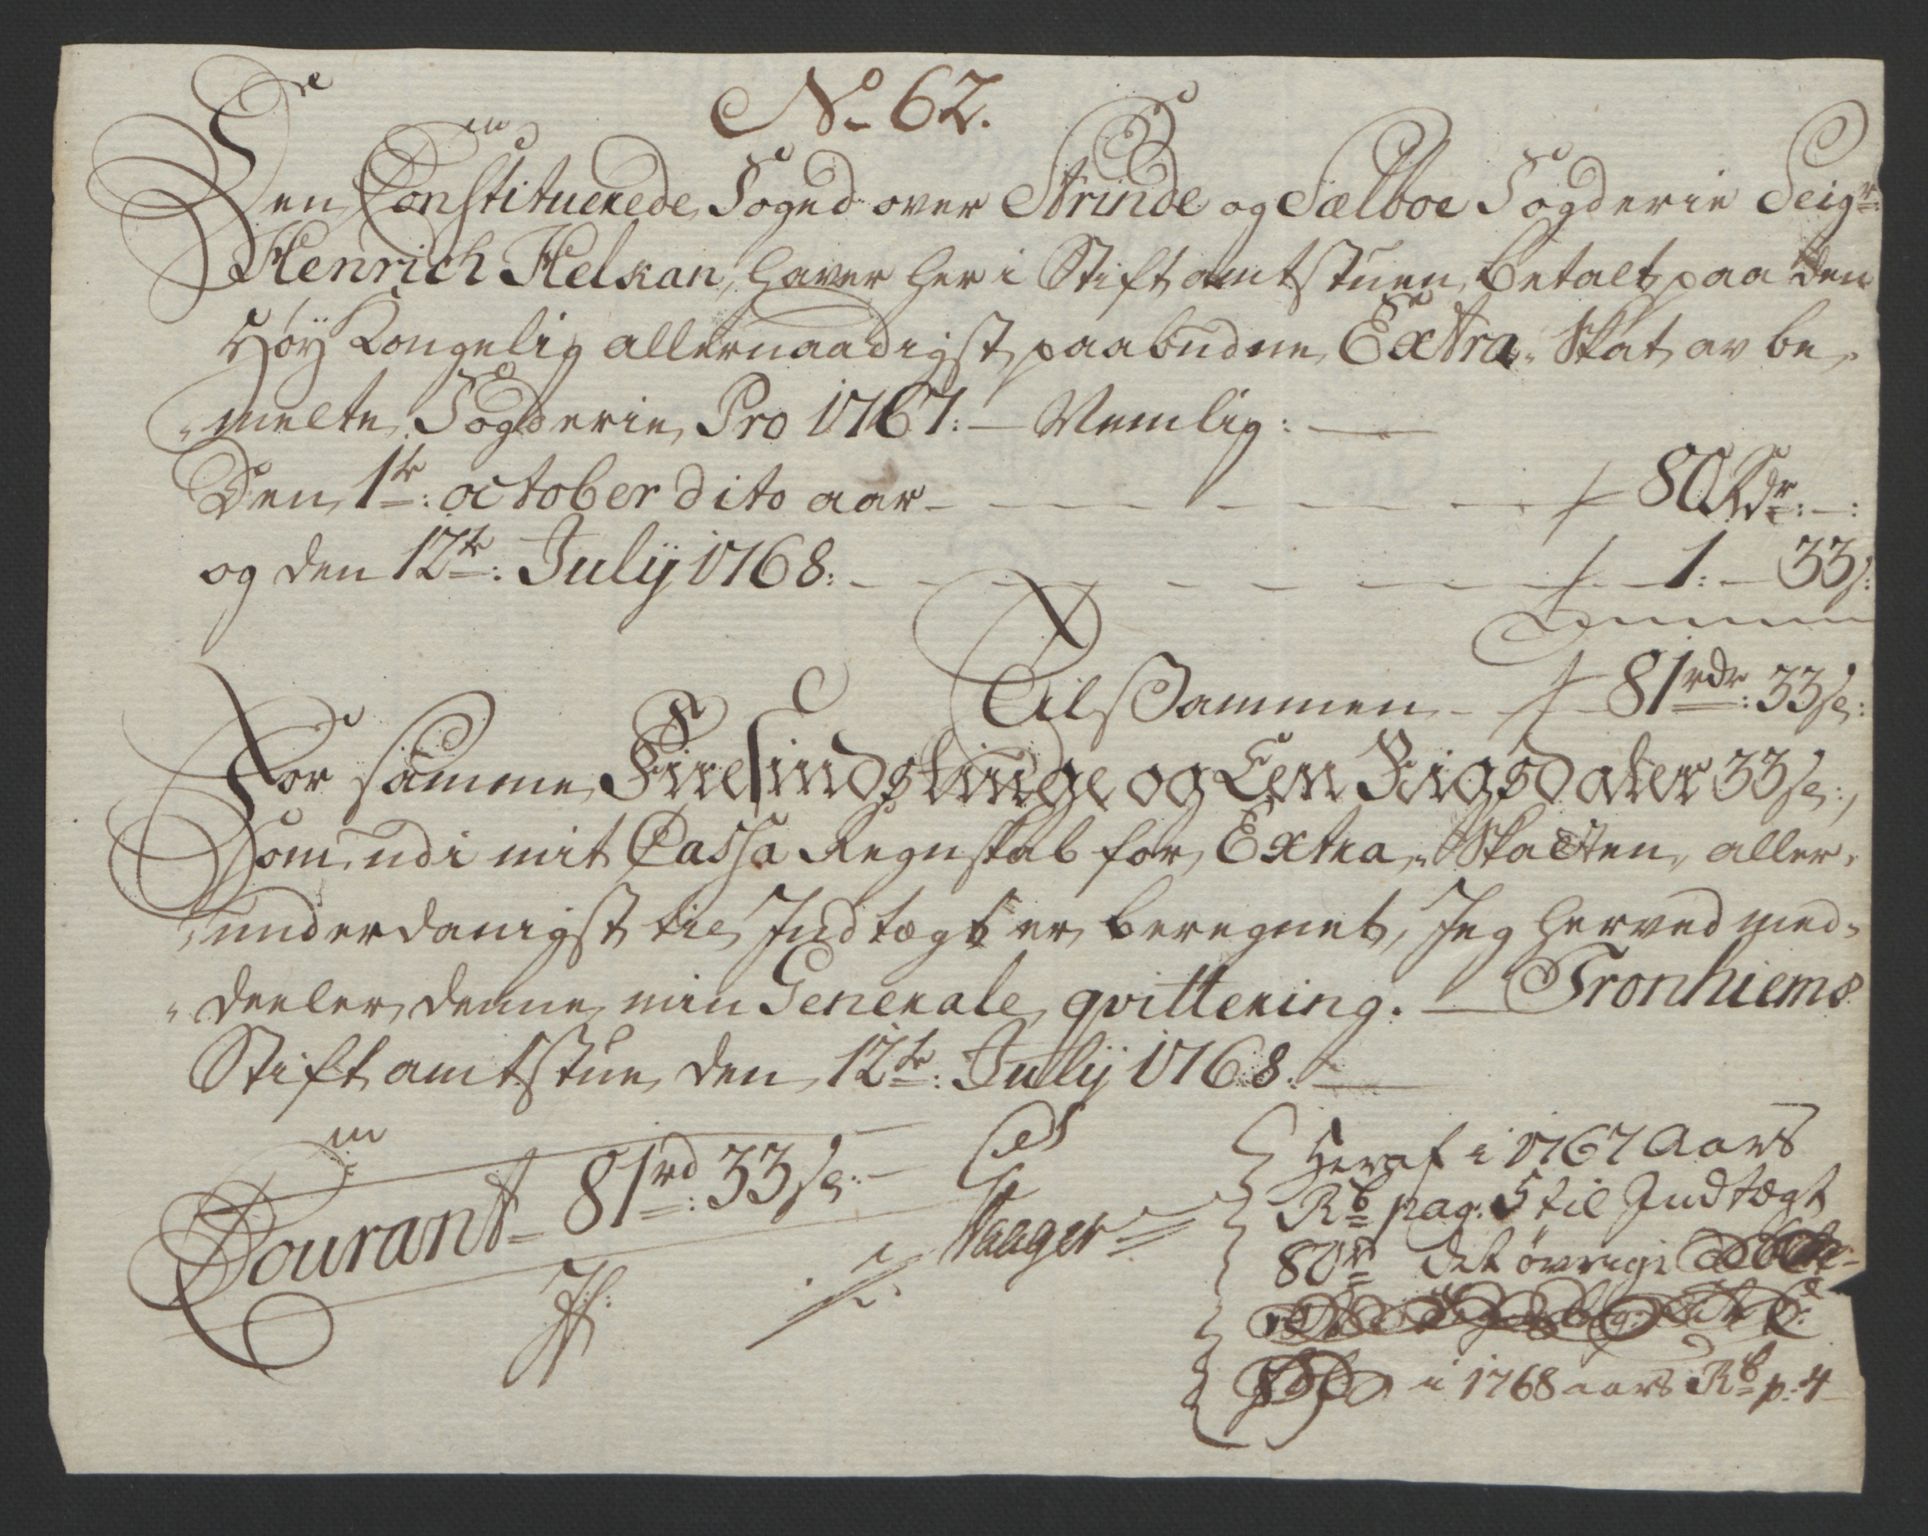 No 62.
Den Constituerede Fogd over Strinde og Sælboe Fogderie Seigr:
Henrich Helkan, haver her i Stiftamtstuen betalt paa den
Høy Kongelig allernaadigst paabudne Extra-Skat av be-
-melte Fogderie Pro 1767: — Nemlig: —
Den 1te: october dito aar — — — 80 Rdr: —:
og den 12te: Julij 1768: — — — 1: — 33 s:
Tilsammen — 81 rdr: 33 s:
For samme Firesindstiuge og Een Rigsdaler 33 s:,
Som udi mit Cassa Regnskab for Extra-Skatten, aller-
-underdanigst til Indtægt er beregnet, Jeg herved med-
-deeler denne min Generale qvittering. — Tronhiems
Stiftamtstue den 12te: Julij 1768. —
Courant 81 rd: 33 s: —
Haager
Heraf i 1767 Aars
Rb pag: 5 til Indtægt
80 rd det øvrige
i 1768 aars Rb p: 4